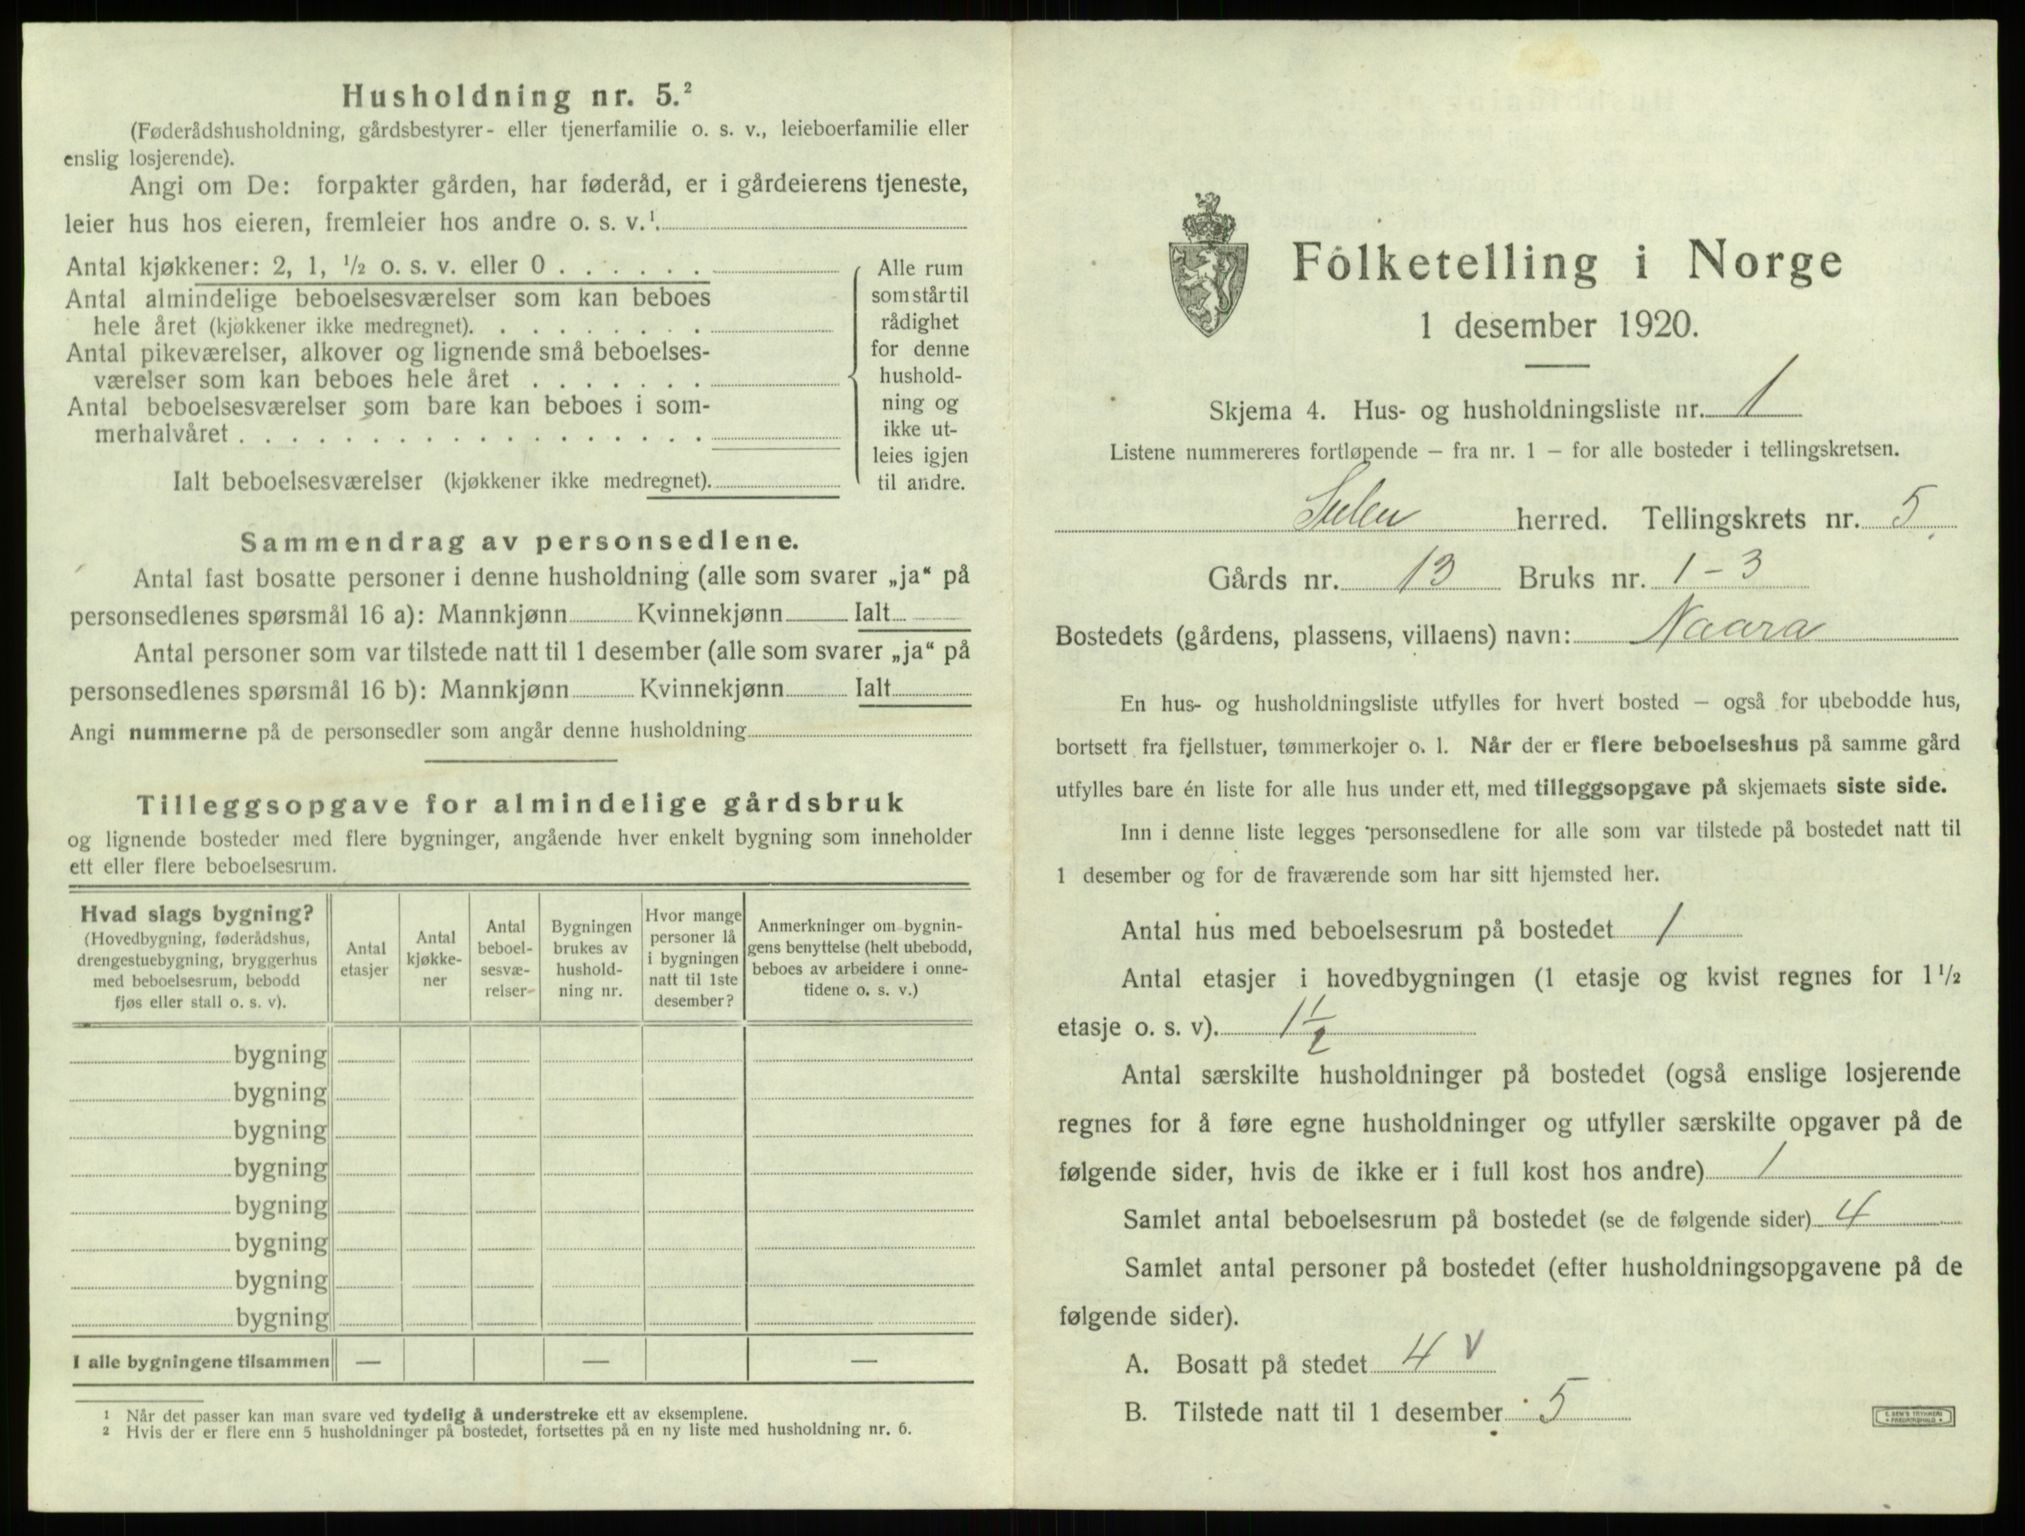 Husholdning nr. 5.²
(Føderådshusholdning, gårdsbestyrer- eller tjenerfamilie o. s. v., leieboerfamilie eller
enslig losjerende).
Angi om De: forpakter gården, har føderåd, er i gårdeierens tjeneste,
leier hus hos eieren, fremleier hos andre o. s. v.¹.
Antal kjøkkener: 2, 1, ½ o. s. v. eller 0 . . . . . .
Antal almindelige beboelsesværelser som kan beboes
hele året (kjøkkener ikke medregnet). . . . . . . . .
Antal pikeværelser, alkover og lignende små beboelses-
værelser som kan beboes hele året . . . . . . .
Antal beboelsesværelser som bare kan beboes i som-
merhalvåret . . . . . . . . . . . . . . . . . .
Ialt beboelsesværelser (kjøkkener ikke medregnet).
Alle rum
som står til
rådighet
for denne
hushold-
ning og
ikke ut-
leies igjen
til andre.
Sammendrag av personsedlene.
Antal fast bosatte personer i denne husholdning (alle som svarer „ja“ på
personsedlenes spørsmål 16 a): Mannkjønn Kvinnekjønn Ialt
Antal personer som var tilstede natt til 1 desember (alle som svarer „ja“ på
personsedlenes spørsmål 16 b): Mannkjønn Kvinnekjønn Ialt
Angi nummerne på de personsedler som angår denne husholdning
Tilleggsopgave for almindelige gårdsbruk
og lignende bosteder med flere bygninger, angående hver enkelt bygning som inneholder
ett eller flere beboelsesrum.
Hvad slags bygning?
(Hovedbygning, føderådshus,
drengestuebygning, bryggerhus
med beboelsesrum, bebodd
fjøs eller stall o. s. v).
Antal
etasjer
Antal
kjøkke-
ner
Antal
beboel-
sesvæ-
relser
Bygningen
brukes av
hushold-
ning nr.
Hvor mange
personer lå
i bygningen
natt til 1ste
desember?
Anmerkninger om bygnin-
gens benyttelse (helt ubebodd,
beboes av arbeidere i onne-
tidene o. s. v.)
bygning
bygning
bygning
bygning
bygning
bygning
bygning
bygning
I alle bygningene tilsammen — — —
¹ Når det passer kan man svare ved tydelig å understreke ett av eksemplene.
² Hvis der er flere enn 5 husholdninger på bostedet, fortsettes på en ny liste med husholdning nr. 6.
Folketelling i Norge
1 desember 1920.
Skjema 4. Hus- og husholdningsliste nr. 1
Listene nummereres fortløpende – fra nr. 1 – for alle bosteder i tellingskretsen.
Sulen herred. Tellingskrets nr. 5
Gårds nr. 13 Bruks nr. 1-3
Bostedets (gårdens, plassens, villaens) navn: Naara
En hus- og husholdningsliste utfylles for hvert bosted – også for ubebodde hus,
bortsett fra fjellstuer, tømmerkojer o. l. Når der er flere beboelseshus på samme gård
utfylles bare én liste for alle hus under ett, med tilleggsopgave på skjemaets siste side.
Inn i denne liste legges personsedlene for alle som var tilstede på bostedet natt til
1 desember og for de fraværende som har sitt hjemsted her.
Antal hus med beboelsesrum på bostedet 1
Antal etasjer i hovedbygningen (1 etasje og kvist regnes for 1 ½
etasje o. s. v). 1 ½
Antal særskilte husholdninger på bostedet (også enslige losjerende
regnes for å føre egne husholdninger og utfyller særskilte opgaver på de
følgende sider, hvis de ikke er i full kost hos andre) 1
Samlet antal beboelsesrum på bostedet (se de følgende sider) 4
Samlet antal personer på bostedet (efter husholdningsopgavene på de
følgende sider).
A. Bosatt på stedet 4 v
B. Tilstede natt til 1 desember 5